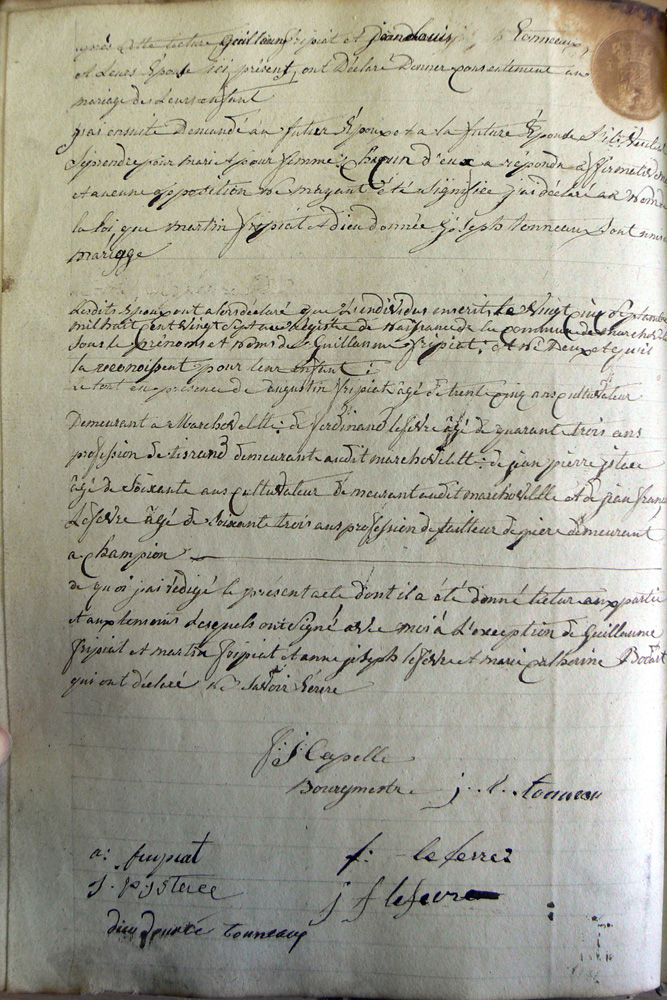 après cette lecture Guillaum fripiat et jean louis j: b: tonneaux,
et Leurs Epouse ici présent, ont Déclaré Donner consentement au
mariage de Leurs enfant
jai ensuite Demandé au futur Epoux et a la future Epouse s'ils veulent
se prendre pour mari et pour femme; chaqun d'eux a repondu affirmativem
et aucune opposition ne mayant été signifiée j'ai déclaré au nom
la loi, que martin fripiat et dieu donnée joseph tonneaux sont unis
mariage
Lesdits Epoux ont alors déclaré que L'individus inscrit, le vingt cinq septembre
mil huit cent vingt sept au Registre de naissance de la commune de marchovelette
sous le prénoms et noms de Guillaume fripiat; est né Deux et quil
la reconoissent pour leur enfant:
le tout en presence de augustin fripiat âgé de trent cinq ans cultivateur
Demeurant a Marchovelette: de ferdinand lefevre âgé de quarant trois ans
profession de tisrand demeurant audit marchovelett: de jean pierre istace
âgé de soixante ans cultivateur demeurant audit marchovelette et de jean franc
Lefevre âgé de soixante trois ans profession de tailleur de piere demeurant
a champion
de quoi jai rédigé le présent acte dont il a été donné lectur aux partie
et aux temoins desquels ont signé avec moi à L'exception de Guillaume
fripiat et martin fripiat et anne joseph lefevre et marie catherine Bodart
qui ont déclaré ne savoir Ecrire
Capelle
Bourgmestre j. tonneau
a: fripiat f: lefevre
j. p istace j f lefevre
dieu donnée tonneaux